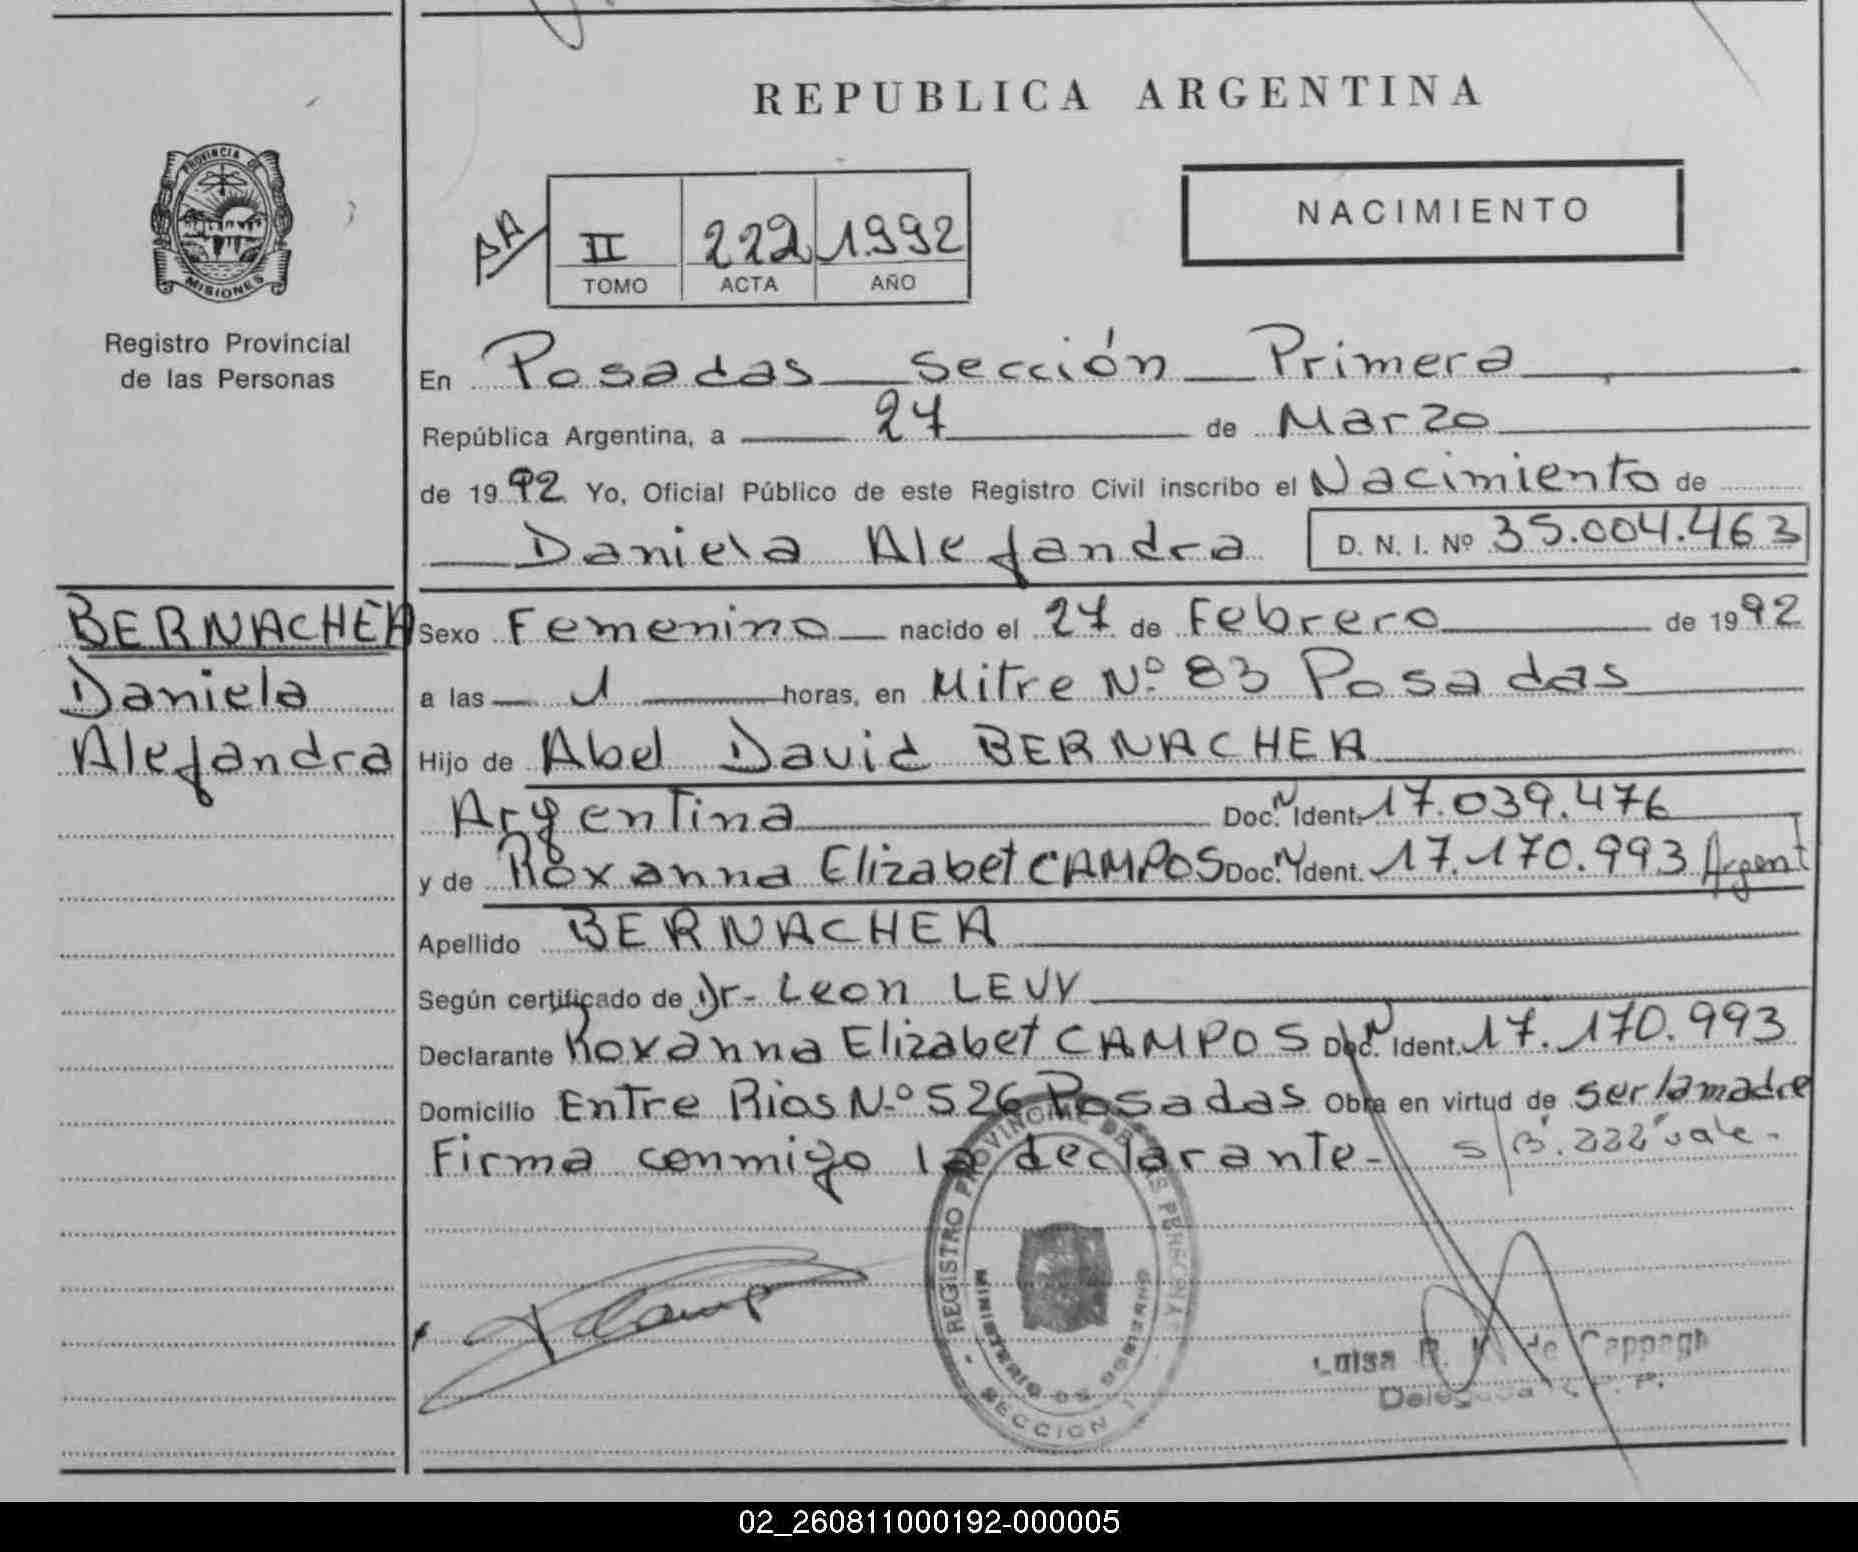 REPUBLICA ARGENTINA
PROVINCIA DE
MISIONES
Registro Provincial
de las Personas
II 222 1.992
TOMO ACTA AÑO
NACIMIENTO
En Posadas Sección Primera
República Argentina, a 27 de Marzo
de 1992 Yo, Oficial Público de este Registro Civil inscribo el Nacimiento de
Daniela Alejandra D. N. I. Nº 35.004.463
BERNACHEA
Daniela
Alejandra
Sexo Femenino nacido el 27 de Febrero de 1992
a las 1 horas, en Mitre Nº 83 Posadas
Hijo de Abel David BERNACHEA
Argentina Doc. N Ident. 17.039.476
y de Roxanna Elizabet CAMPOS Doc. N Ident. 17.170.993 Argent
Apellido BERNACHEA
Según certificado de Dr- Leon LEVY
Declarante Roxanna Elizabet CAMPOS Doc. N Ident. 17.170.993
Domicilio Entre Rios N-º 526 Posadas Obra en virtud de ser la madre
Firma conmigo la declarante- s/B. "222" vale.-
REGISTRO PROVINCIAL DE LAS PERSONAS
MINISTERIO DE GOBIERNO
SECCION 1
Luisa R. de Cappagh
02_260811000192-000005